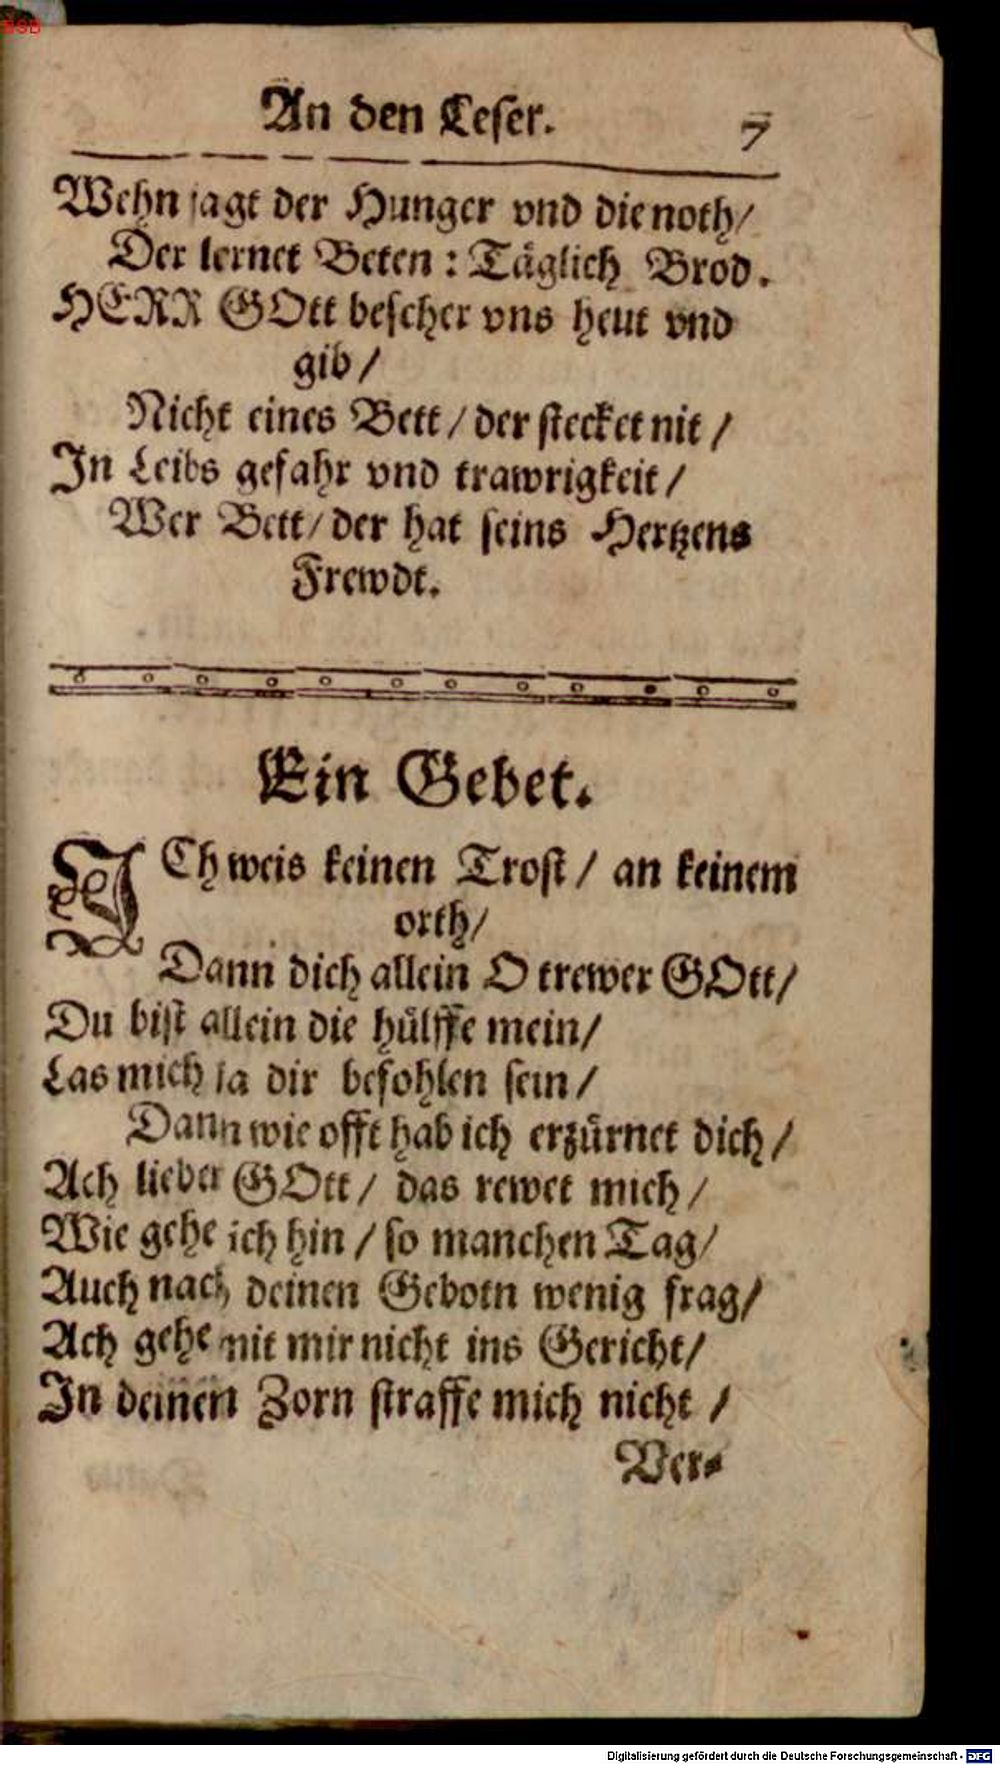 BSB
An den Leser. 7
Wehn jagt der Hunger vnd die noth/
Der lernet Beten: Täglich Brod.
HERR GOtt bescher vns heut vnd
gib/
Nicht eines Bett/ der stecket nit/
In Leibs gefahr vnd trawrigkeit/
Wer Bett/ der hat seins Hertzens
Frewdt.
Ein Gebet.
ICh weis keinen Trost/ an keinem
orth/
Dann dich allein O trewer GOtt/
Du bist allein die hülffe mein/
Las mich ja dir befohlen sein/
Dann wie offt hab ich erzürnet dich/
Ach lieber GOtt/ das rewet mich/
Wie gehe ich hin/ so manchen Tag/
Auch nach deinen Gebotn wenig frag/
Ach gehe mit mir nicht ins Gericht/
In deinen Zorn straffe mich nicht/
Ver-
Digitalisierung gefördert durch die Deutsche Forschungsgemeinschaft - DFG